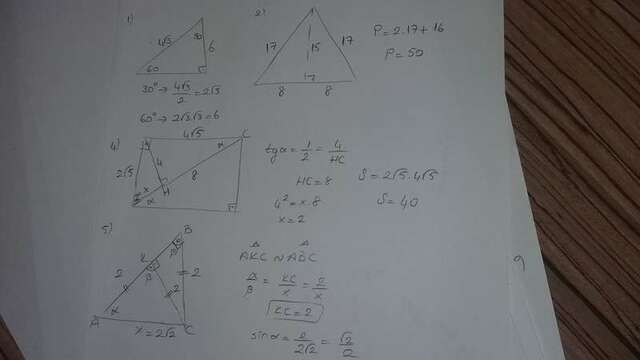 1)
4√3
30
6
60
30° → 4√3/2 = 2√3
60° → 2√3√3 = 6
2)
17 15 17
8 8
P = 2.17 + 16
P = 50
4)
4√5
C
α
2√5
4
8
x
H
α
tgα = 1/2 = 4/HC
HC = 8
4² = x.8
x = 2
S = 2√5.4√5
S = 40
5)
B
β
K
2
β
2
2
α
A
C
x = 2√2
AKC ~
β = KC/x = 2/x
KC = 2
sinα = 2/2√2 = √2/2